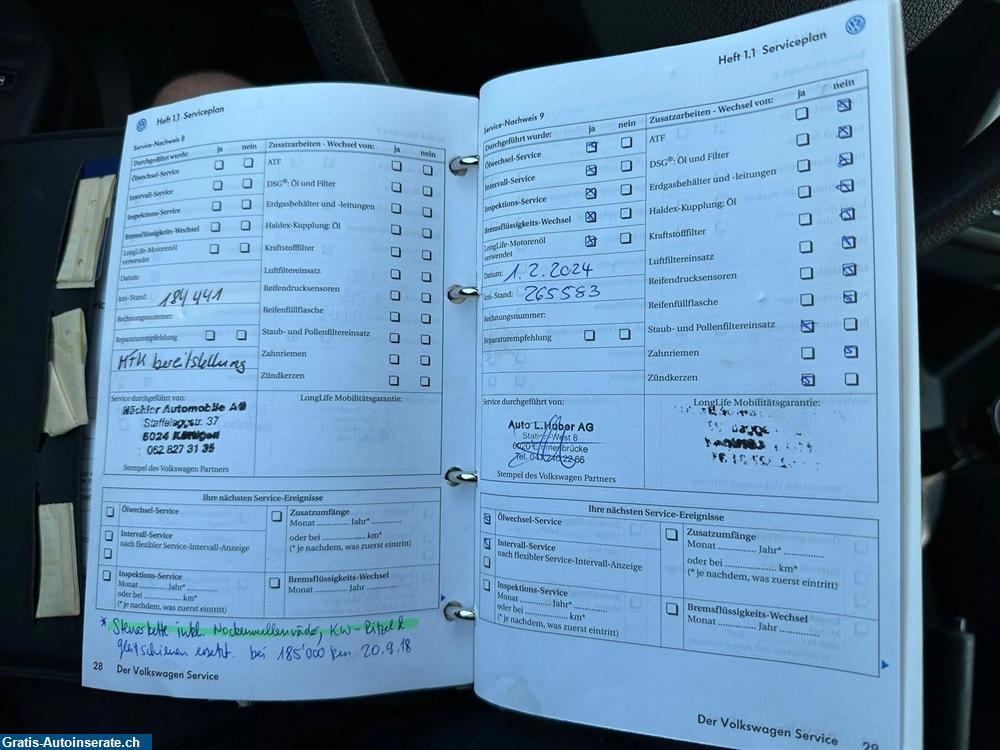 Heft 1.1 Serviceplan
Service-Nachweis 8
Durchgeführt wurde: ja nein
Ölwechsel-Service
Intervall-Service
Inspektions-Service
Bremsflüssigkeits-Wechsel
LongLife-Motorenöl
verwendet
Datum:
km-Stand: 184441
Rechnungsnummer:
Reparaturempfehlung
MFK bereitstellung
Zusatzarbeiten - Wechsel von: ja nein
ATF
DSG®: Öl und Filter
Erdgasbehälter und -leitungen
Haldex-Kupplung: Öl
Kraftstofffilter
Luftfiltereinsatz
Reifendrucksensoren
Reifenfüllflasche
Staub- und Pollenfiltereinsatz
Zahnriemen
Zündkerzen
Service durchgeführt von:
Mächler Automobile AG
Staffeleggstr. 37
5024 Küttigen
062 827 31 35
Stempel des Volkswagen Partners
LongLife Mobilitätsgarantie:
Ihre nächsten Service-Ereignisse
Ölwechsel-Service
Intervall-Service
nach flexibler Service-Intervall-Anzeige
Inspektions-Service
Monat ............ Jahr* ............
oder bei ............ km*
(* je nachdem, was zuerst eintritt)
Zusatzumfänge
Monat ............ Jahr* ............
oder bei ............ km*
(* je nachdem, was zuerst eintritt)
Bremsflüssigkeits-Wechsel
Monat ............ Jahr ............
* Steuerkette inkl. Nockenwellenräder, KW-Ritzel &
gleitschienen ersetzt. bei 185'000 km 20.9.18
28 Der Volkswagen Service
Heft 1.1 Serviceplan
Service-Nachweis 9
Durchgeführt wurde: ja nein
Ölwechsel-Service
Intervall-Service
Inspektions-Service
Bremsflüssigkeits-Wechsel
LongLife-Motorenöl
verwendet
Datum: 1.2.2024
km-Stand: 265583
Rechnungsnummer:
Reparaturempfehlung
Zusatzarbeiten - Wechsel von: ja nein
ATF
DSG®: Öl und Filter
Erdgasbehälter und -leitungen
Haldex-Kupplung: Öl
Kraftstofffilter
Luftfiltereinsatz
Reifendrucksensoren
Reifenfüllflasche
Staub- und Pollenfiltereinsatz
Zahnriemen
Zündkerzen
Service durchgeführt von:
Auto L. Huber AG
West 8
6020 Emmenbrücke
Tel.
Stempel des Volkswagen Partners
LongLife Mobilitätsgarantie:
Ihre nächsten Service-Ereignisse
Ölwechsel-Service
Intervall-Service
nach flexibler Service-Intervall-Anzeige
Inspektions-Service
Monat ............ Jahr* ............
oder bei ............ km*
(* je nachdem, was zuerst eintritt)
Zusatzumfänge
Monat ............ Jahr* ............
oder bei ............ km*
(* je nachdem, was zuerst eintritt)
Bremsflüssigkeits-Wechsel
Monat ............ Jahr ............
Der Volkswagen Service 29
Gratis-Autoinserate.ch